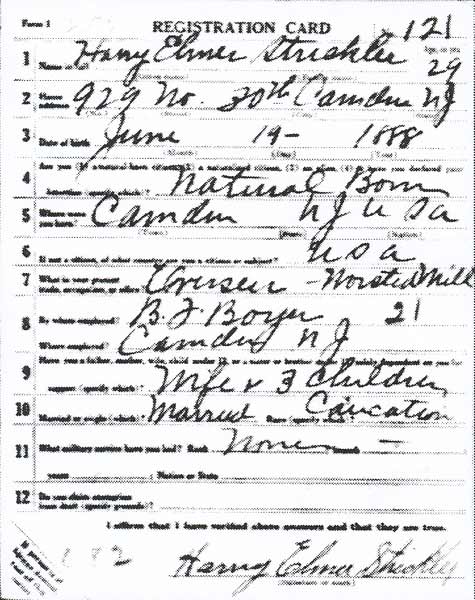 Form 1 REGISTRATION CARD 121
1 Name Harry Elmer Strickler 29
2 Home address 929 No. 30th Camden NJ
3 Date of birth June 19 - 1888
(Month) (Day) (Year)
4 Are you (1) a natural-born citizen, (2) a naturalized citizen, (3) an alien, (4) have you declared your
intention (specify which)? Natural Born
5 Where were you born? Camden NJ USA
(Town) (State) (Nation)
6 If not a citizen, of what country are you a citizen or subject? USA
7 What is your present trade, occupation, or office? Overseer - Worsted Mill
8 By whom employed? B. F. Boyer 21
Where employed? Camden NJ
9 Have you a father, mother, wife, child under 12, or a sister or brother under 12, solely dependent on you for
support (specify which)? Wife & 3 Children
10 Married or single (which)? Married Race (specify which)? Caucation
11 What military service have you had? Rank None branch -
years Nation or State
12 Do you claim exemption from draft (specify grounds)?
I affirm that I have verified above answers and that they are true.
Harry Elmer Strickler
(Signature or mark)